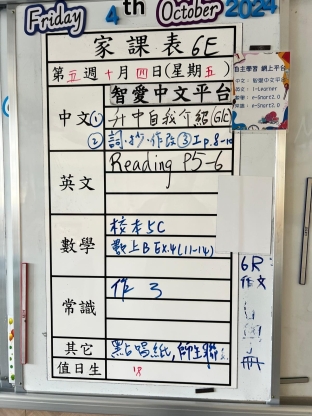 Friday 4th October 2024
家課表 6E
第五週十月四日(星期五)
智愛中文平台
中文 ① 升中自我介紹(G/E)
② 詞、抄、作改 ③工p.8-10
英文 Reading P5-6
數學 校本5C
數上B Ex.4(11-14)
常識 作3
其它 點唱紙,
值日生 18
自主學習 網上平台
中文: 智愛中文平台
英文: i-Learner
6R
作文
冊